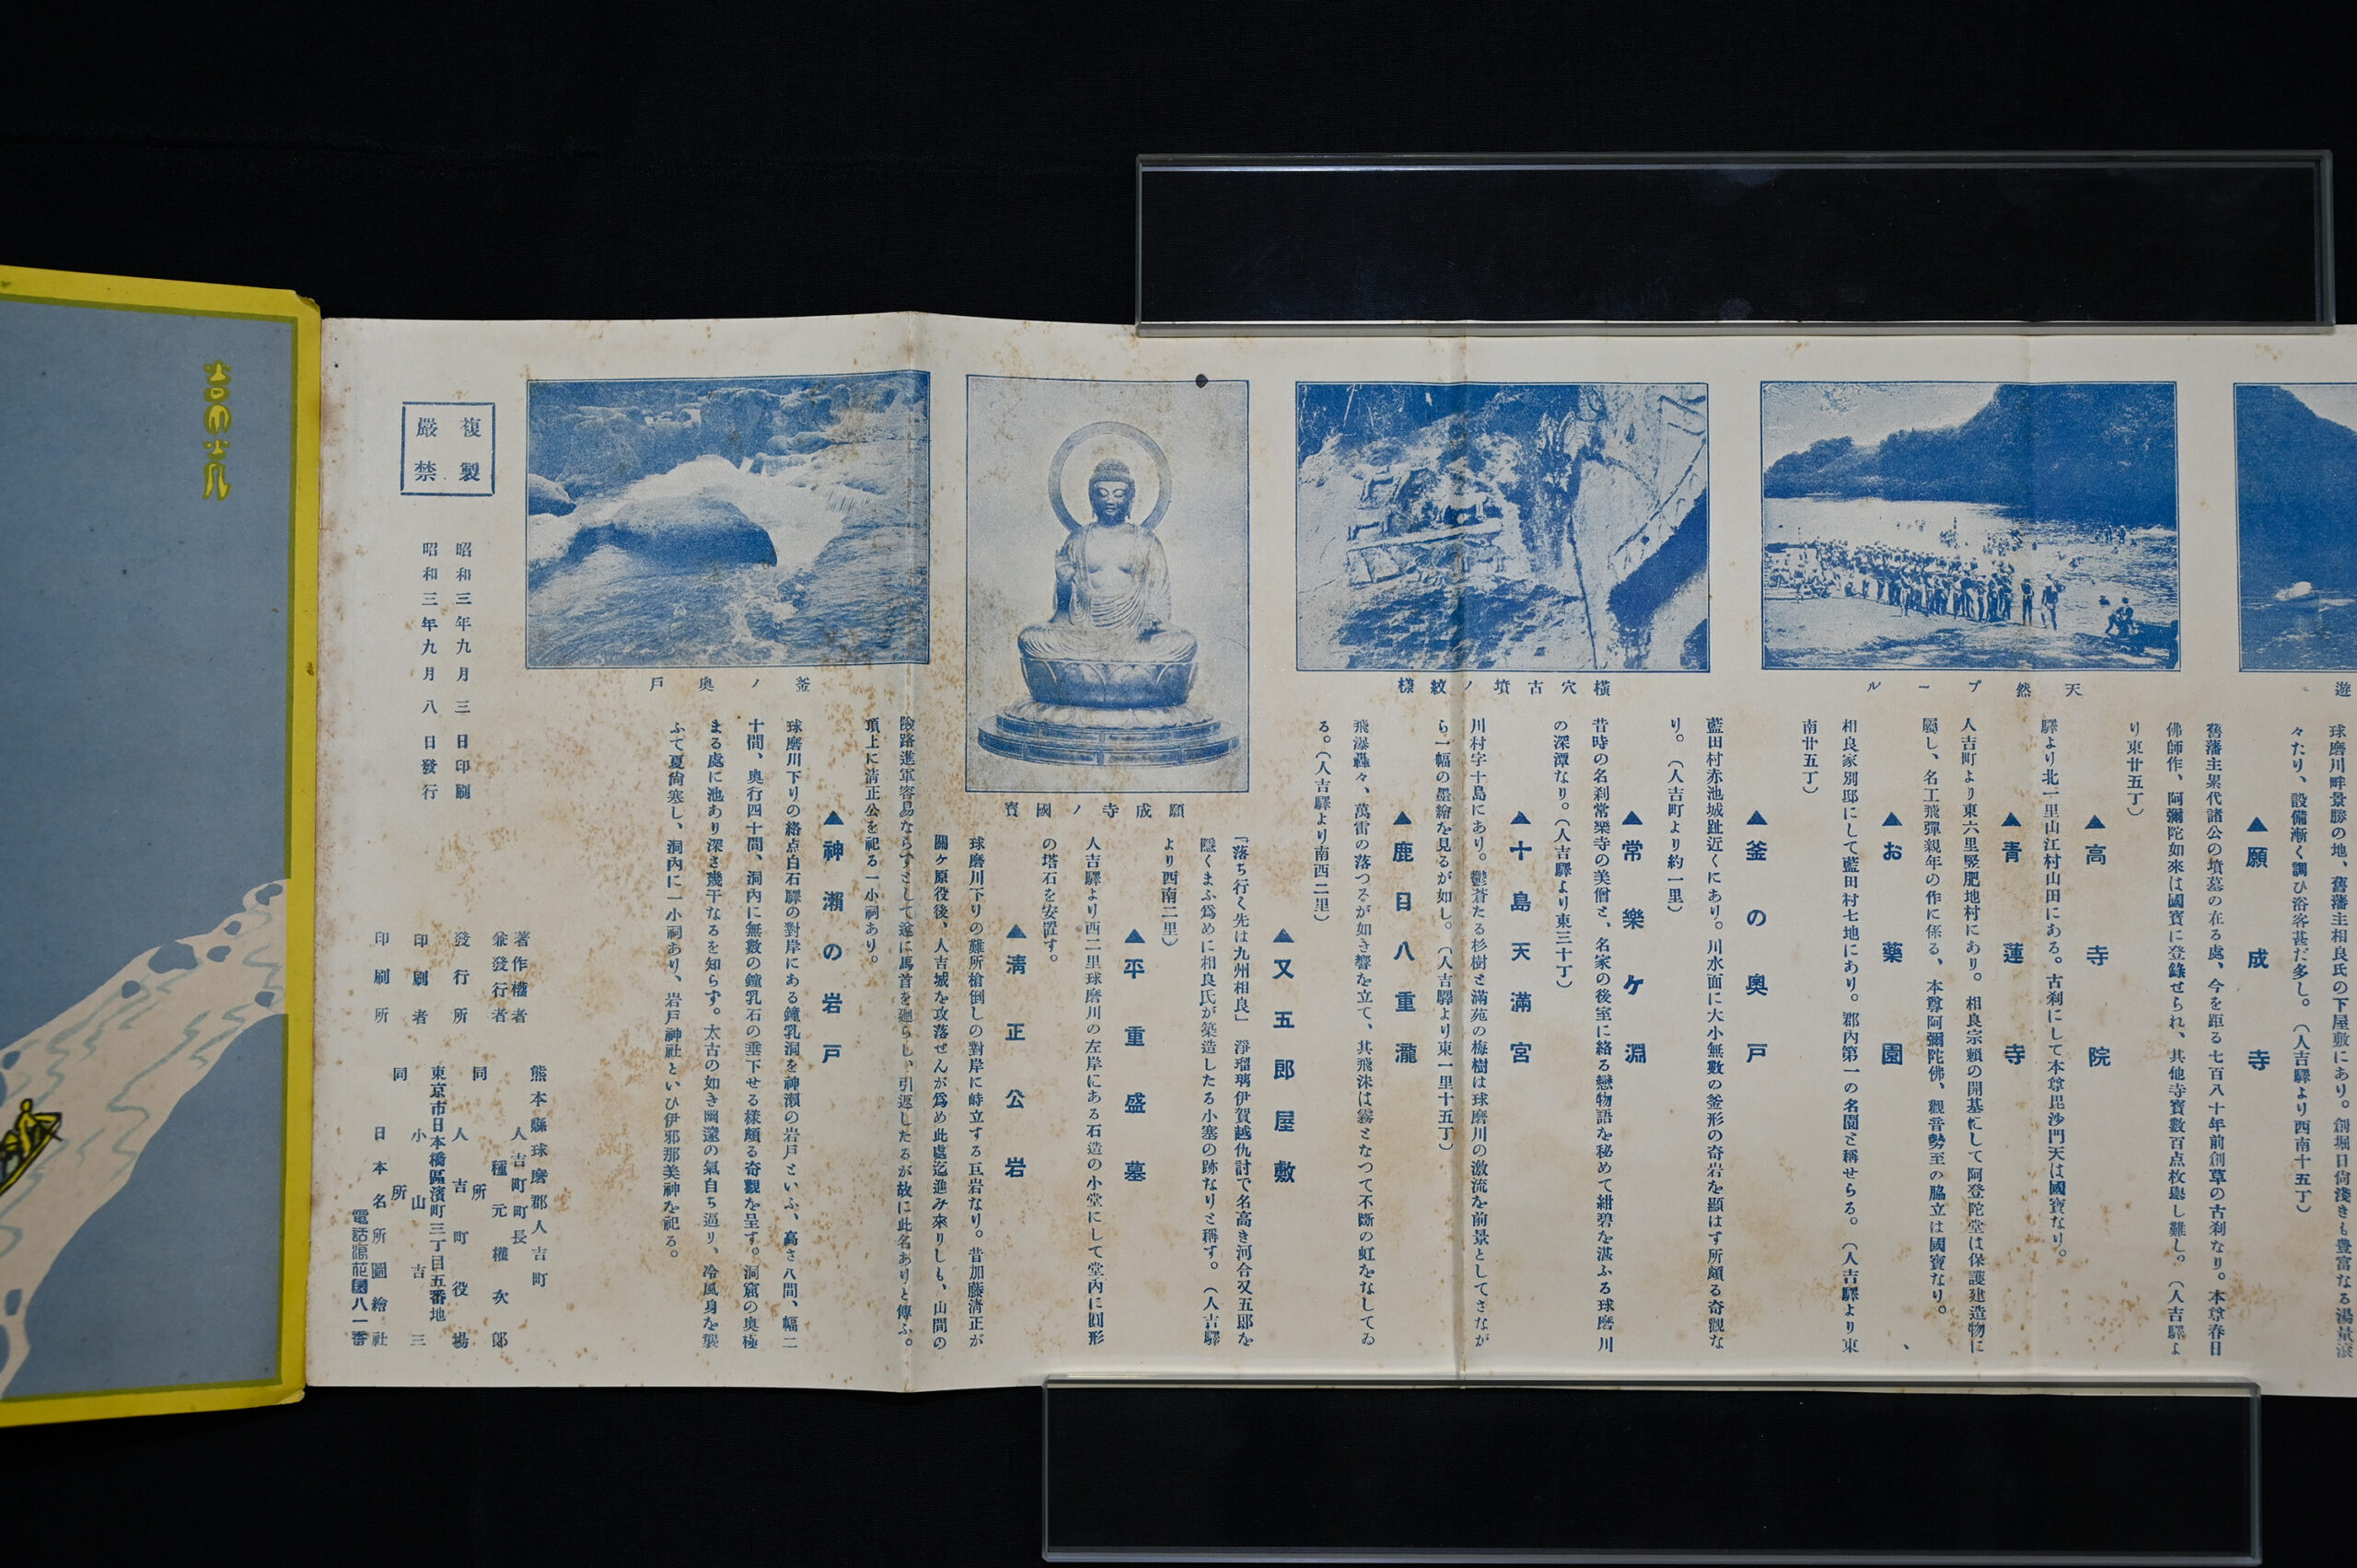 遊
天然プール
横穴古墳ノ紋様
願成寺ノ國寶
釜ノ奥戸
球磨川畔景勝の地、舊藩主相良氏の下屋敷にあり。創堀日尚淺きも豊富なる湯量滾
々たり、設備漸く調ひ浴客甚だ多し。（人吉驛より西南十五丁）
▲願成寺
舊藩主累代諸公の墳墓の在る處、今を距る七百八十年前創草の古刹なり。本尊春日
佛師作、阿彌陀如來は國寶に登錄せられ、其他寺寶數百点枚擧し難し。（人吉驛よ
り東廿五丁）
▲高寺院
驛より北一里山江村山田にある。古刹にして本尊毘沙門天は國寶なり。
▲青蓮寺
人吉町より東六里竪肥地村にあり。相良宗頼の開基にして阿登陀堂は保護建造物に
屬し、名工飛彈親年の作に係る、本尊阿彌陀佛、觀音勢至の脇立は國寶なり。
▲お藥園
相良家別邸にして藍田村七地にあり。郡內第一の名園と稱せらる。（人吉驛より東
南廿五丁）
▲釜の奥戸
藍田村赤池城趾近くにあり。川水面に大小無數の釜形の奇岩を顯はす所頗る奇觀な
り。（人吉町より約一里）
▲常樂ケ淵
昔時の名刹常樂寺の美僧と、名家の後室に絡る戀物語を秘めて紺碧を湛ふる球磨川
の深潭なり。（人吉驛より東三十丁）
▲十島天滿宮
川村字十島にあり。鬱蒼たる杉樹と滿苑の梅樹は球磨川の激流を前景としてさなが
ら一幅の墨繪を見るが如し。（人吉驛より東一里十五丁）
▲鹿目八重瀧
飛瀑轟々、萬雷の落つるが如き響を立て、其飛沫は霧となつて不斷の虹をなしてゐ
る。（人吉驛より南西二里）
▲又五郎屋敷
『落ち行く先は九州相良」淨瑠璃伊賀越仇討で名高き河合又五郎を
隱くまふ爲めに相良氏が築造したる小塞の跡なりと稱す。（人吉驛
より西南二里）
▲平重盛墓
人吉驛より西二里球磨川の左岸にある石造の小堂にして堂內に圓形
の塔石を安置す。
▲淸正公岩
球磨川下りの難所槍倒しの對岸に峙立する巨岩なり。昔加藤淸正が
關ケ原役後、人吉城を攻落ぜんが爲め此處迄進み來りしも、山間の
險路進軍容易ならずとして遂に馬首を廻らし、引返したるが故に此名ありと傳ふ。
頂上に淸正公を祀る一小祠あり。
▲神瀨の岩戸
球磨川下りの絡点白石驛の對岸にある鐘乳洞を神瀨の岩戸といふ、高さ八間、幅二
十間、奥行四十間、洞內に無數の鐘乳石の垂下せる樣頗る奇觀を呈す。洞窟の奥極
まる處に池あり深さ幾干なるを知らす。太古の如き幽邃の氣自ら逼り、冷風身を襲
ふて夏尙寒し、洞內に一小祠あり、岩戸神社といひ伊邪那美神を祀る。
複製
嚴禁
昭和三年九月三日印刷
昭和三年九月八日發行
著作權者
兼發行者
熊本縣球磨郡人吉町
人吉町町長
種元權次郎
發行所
同所
人吉町役場
印刷者
東京市日本橋區濱町三丁目五番地
小山吉三
印刷所
同所
日本名所圖繪社